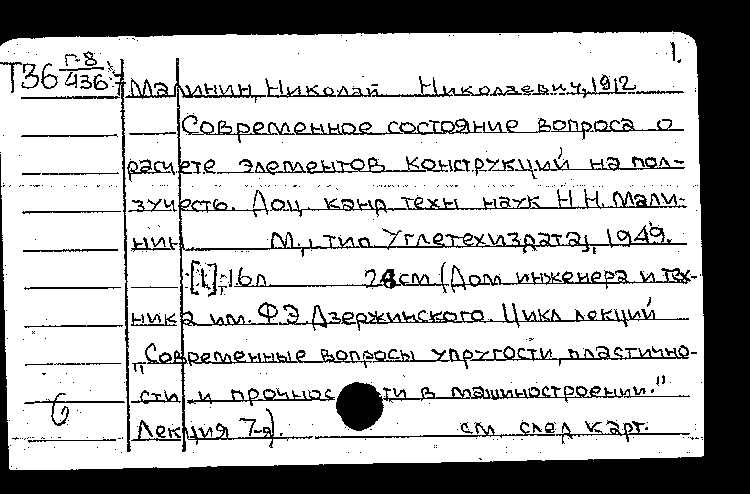 1.
Т36 Г-8/436
Малинин, Николай Николаевич, 1912
Современное состояние вопроса о
расчете элементов конструкций на пол-
зучесть. Доц. канд техн наук Н.Н. Мали-
нин М., тип Углетехиздата, 1949.
[1], 16 л см (Дом инженера и тех-
ника им. Ф.Э. Дзержинского. Цикл лекций
„Современные вопросы упругости, пластично-
сти и прочнос ти в машиностроении."
Лекция 7-я). см. след карт.
6